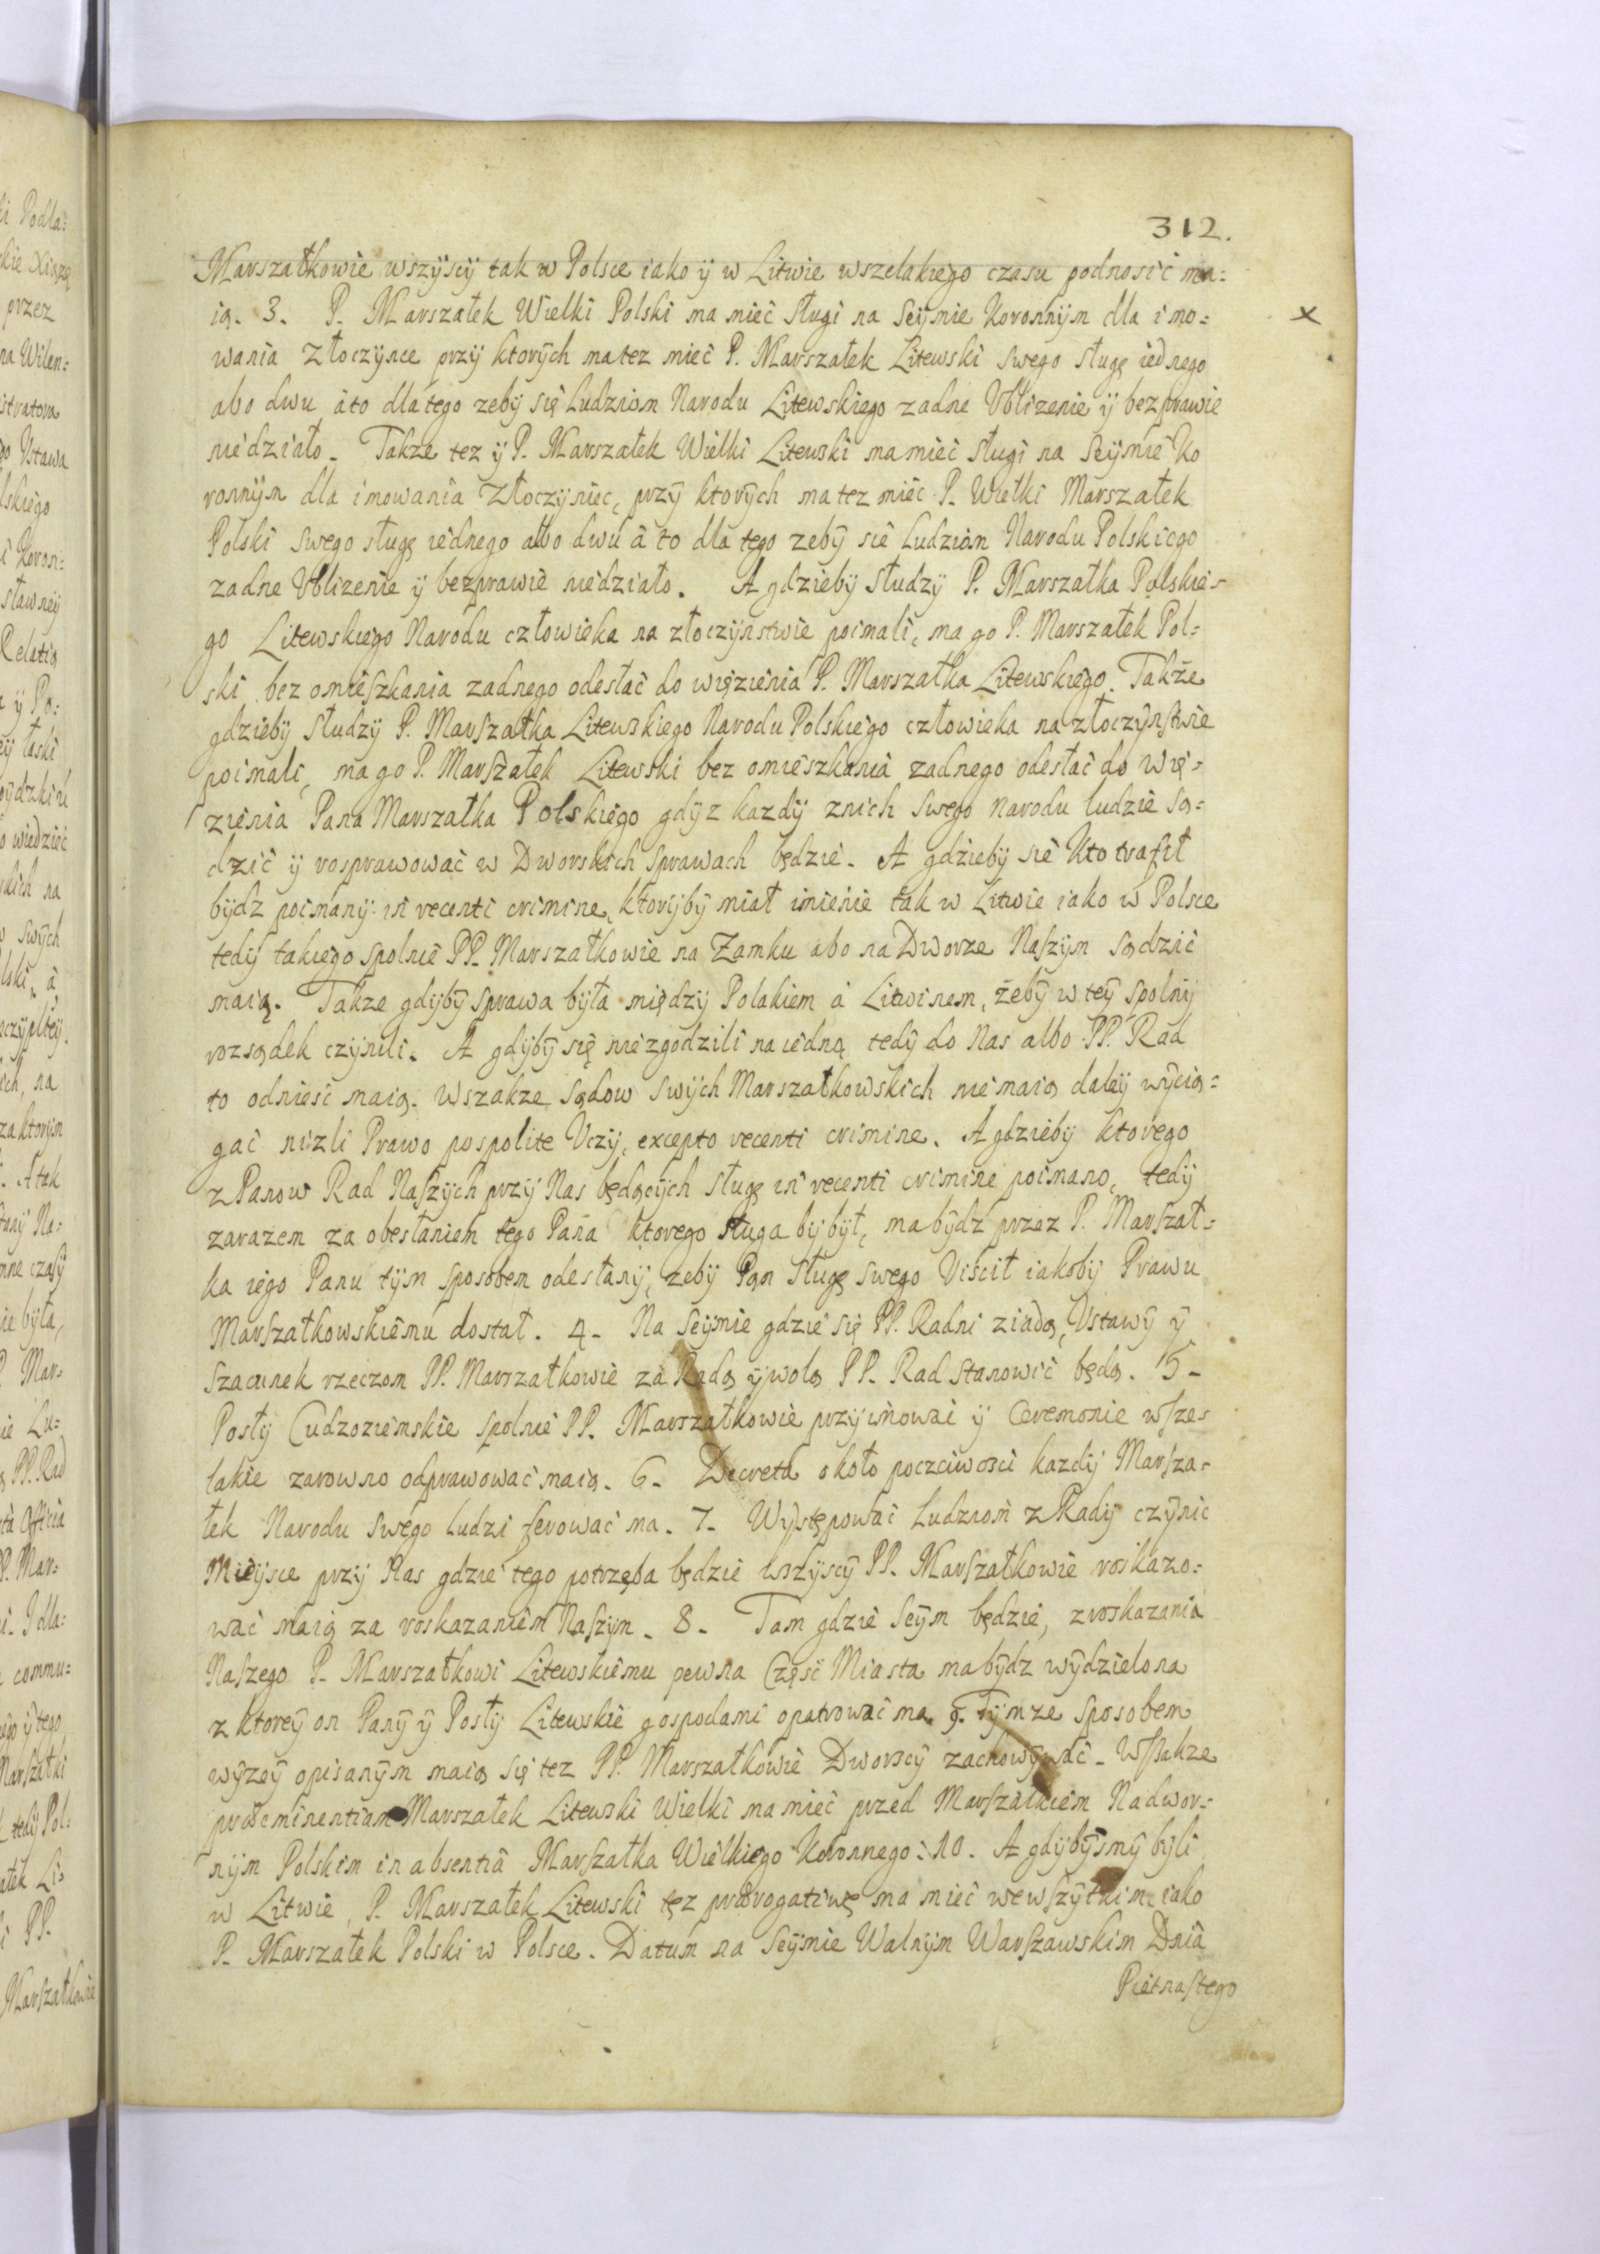 312.
Marszałkowie wszyscy tak w Polsce iako ÿ w Litwie wszelakiego czasu podnosić ma=
ią. 3. P. Marszałek Wielki Polski ma mieć Sługi na Seÿmie Koronnÿm dla imo=
wania Złoczÿnce przÿ ktorÿch ma tez mieć P. Marszałek Litewski Swego Sługę iednego
abo dwu á to dla tego zebÿ się Ludziom Narodu Litewskiego zadne Ubliżenie ÿ bezprawie
niedziało. Takze tez ÿ P. Marszałek Wielki Litewski ma mieć Sługi na Seÿmie Ko
ronnÿm dla imowania Złoczÿniec, przÿ ktorÿch ma tez mieć P. Wielki Marszałek
Polski Swego sługę iednego albo dwu á to dla tego zebÿ sie Ludziom Narodu Polskiego
zadne Ublizenie ÿ bezprawie niedziało. A gdzieby Słudzÿ P. Marszałka Polskie=
go Litewskiego Narodu człowieka na złoczÿnstwie poimali, ma go P. Marszałek Pol=
ski bez omieszkania zadnego odesłać do więzienia P. Marszałka Litewskiego. Takze
gdzieby Słudzÿ P. Marszałka Litewskiego Narodu Polskiego człowieka na złoczÿnstwie
poimali, ma go P. Marszałek Litewski bez omieszkania zadnego odesłać do Wię=
zienia Pana Marszałka Polskiego gdÿz kazdÿ znich Swego Narodu ludzie Są=
dzić ÿ rosprawować w Dworskich Sprawach będzie. A gdzieby się Kto trafił
bÿdz poimanÿ in recenti crimine, ktorÿbÿ miał imienie tak w Litwie iako w Polsce
tedÿ takiego spolnie PP. Marszałkowie na Zamku abo na Dworze Naszÿm Sądzić
maią. Takze gdÿbÿ Sprawa była międzÿ Polakiem á Litwinem, żebÿ w teÿ Spolnÿ
rozsądek czÿnili. A gdÿbÿ się niezgodzili na iedną tedÿ do Nas albo PP. Rad
to odnieść maią. Wszakze Sądow Swÿch Marszałkowskich nie maią daleÿ wÿcią=
gać nizli Prawo pospolite Uczÿ, excepto recenti crimine. A gdzieby ktorego
z Panow Rad Naszÿch przÿ Nas będącÿch sługę in recenti crimine poimano, tedÿ
zarazem za obesłaniem tego Pana ktorego sługa bÿ bÿł, ma bÿdź przez P. Marszał=
ka iego Panu tÿm sposobem odesłanÿ, zebÿ Pan Sługę Swego Uiścił iakobÿ Prawu
Marszałkowskiemu dostał. 4. Na Seÿmie gdzie się PP. Radni ziadą, Ustawÿ ÿ
Szacunek rzeczom PP. Marszałkowie za Radą ÿ wolą PP. Rad Stanowić będą. 5.
Posłÿ Cudzoziemskie spolnie PP. Marszałkowie przÿimować ÿ Ceremonie wsze=
lakie zarowno odprawować maią. 6. Decreta około poczciwości kazdÿ Marsza=
łek Narodu Swego ludzi ferować ma. 7. Wÿstępować Ludziom z Radÿ czÿnić
Mieÿsce przÿ Nas gdzie tego potrzeba będzie wszÿscÿ PP. Marszałkowie roskazo=
wać maią za roskazaniem Naszÿm. 8. Tam gdzie Seÿm będzie, z roskazania
Naszego P. Marszałkowi Litewskiemu pewna Część Miasta ma bÿdz wÿdzielona
z ktoreÿ on Panÿ ÿ Posłÿ Litewskie gospodami opatrować ma. 9. Tÿmze Sposobem
wÿzeÿ opisanÿm maią się tez PP. Marszałkowie Dworscÿ zachowÿwać. Wszakze
praeeminentiam Marszałek Litewski Wielki ma mieć przed Marszałkiem Nadwor=
nÿm Polskim in absentiâ Marszałka Wielkiego Koronnego. 10. A gdÿbÿsmÿ bÿli
w Litwie, P. Marszałek Litewski tez praerogatiwę ma mieć we wszÿtkim iako
P. Marszałek Polski w Polsce. Datum na Seÿmie Walnÿm Warszawskim Dnia
Piętnastego